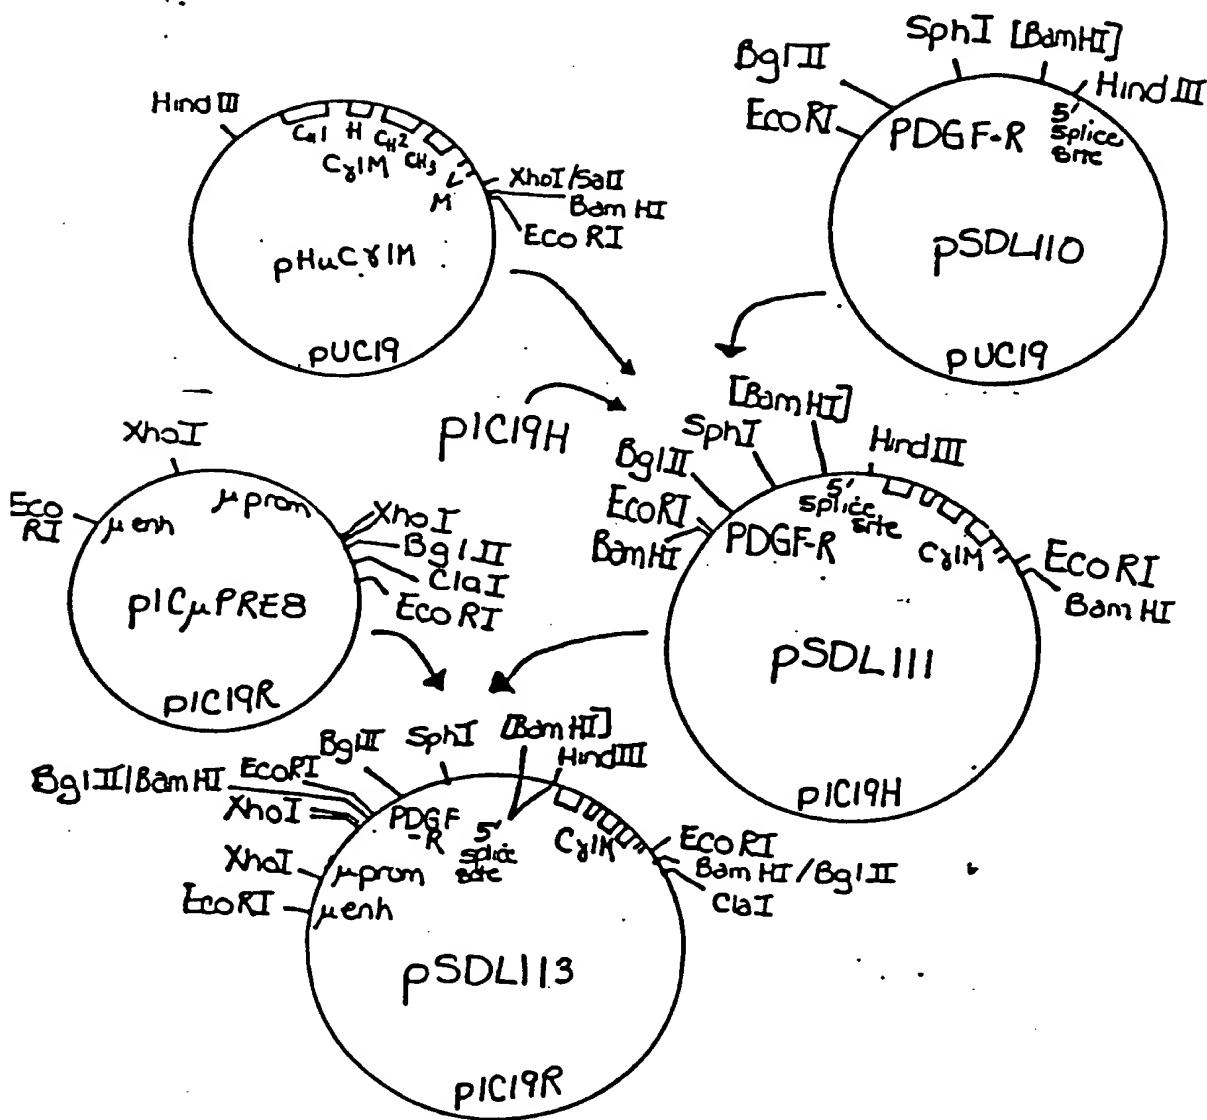 Hind III
CH1 H CH2 CH3
Cγ1M
M
XhoI/SalI
Bam HI
Eco RI
pHuCγ1M
pUC19
Bgl II
SphI [BamHI]
Hind III
EcoRI
PDGF-R
5'
Splice
Site
pSDL110
pUC19
pIC19H
XhoI
Eco
RI
μ enh
μ prom
XhoI
Bgl II
ClaI
EcoRI
pICμPRE8
pIC19R
[BamHI]
SphI
Hind III
Bgl II
EcoRI
BamHI
PDGF-R
5'
Splice
Site
Cγ1M
EcoRI
BamHI
pSDL111
pIC19H
Bgl II
SphI
[BamHI]
Hind III
Bgl II/BamHI
EcoRI
XhoI
XhoI
EcoRI
PDGF
-R
5'
Splice
Site
Cγ1M
μ prom
μ enh
EcoRI
BamHI/Bgl II
ClaI
pSDL113
pIC19R